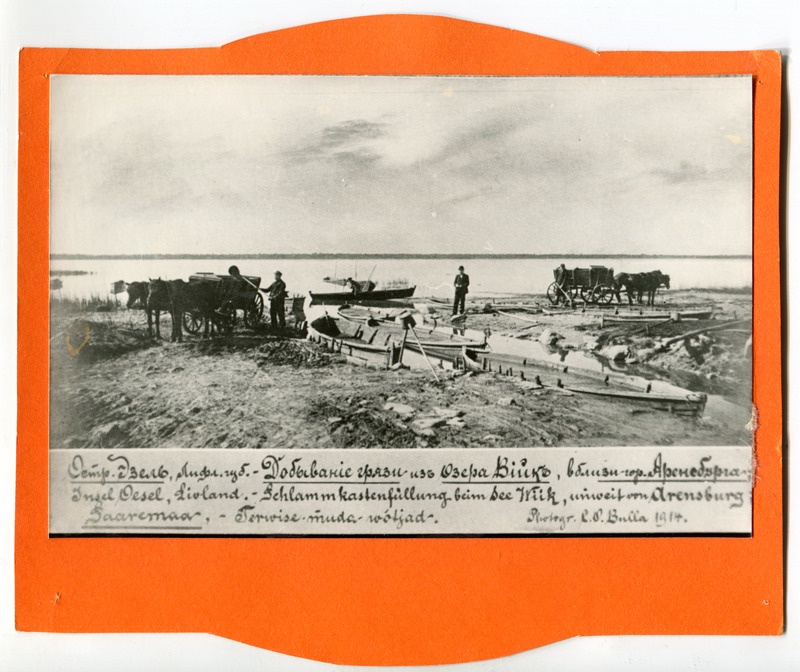 Остр. Эзель, Лифл. губ. - Добываніе грязи изъ Озера Війкъ, вблизи гор. Аренсбурга.
Insel Oesel, Livland. - Schlammkastenfüllung beim See Wiik, unweit von Arensburg
Saaremaa, - Terwise-muda-wõtjad. Photogr. C. O. Bulla 1914.